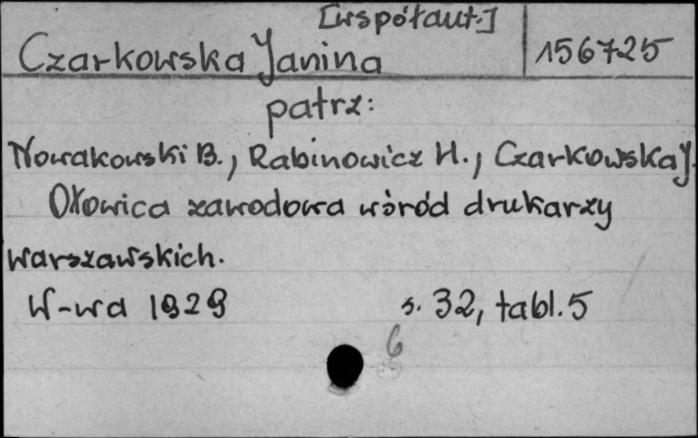 [współaut.]
Czarkowska Janina
156725
patrz:
Nowakowski B., Rabinowicz H., Czarkowska J.
Ołowica zawodowa wśród drukarzy
warszawskich.
W-wa 1929 s. 32, tabl. 5
6